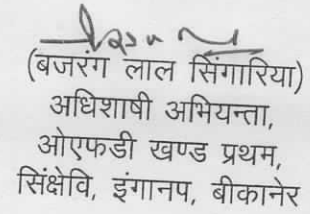 (बजरंग लाल सिंगारिया)
अधिशाषी अभियन्ता,
ओएफडी खण्ड प्रथम,
सिंक्षेवि, इंगानप, बीकानेर